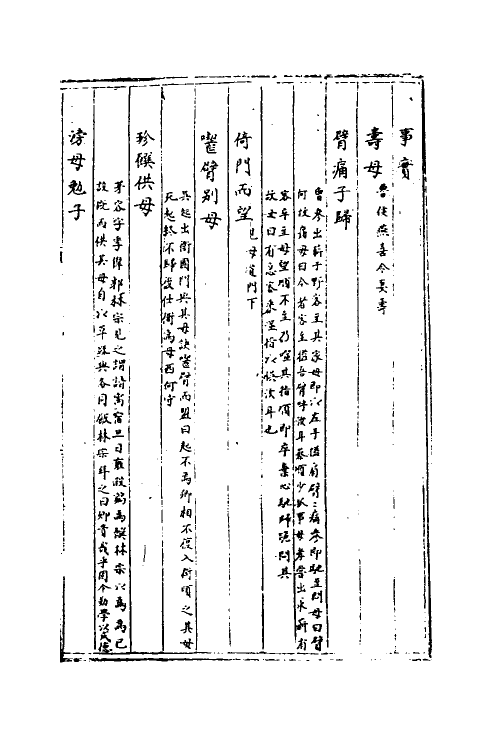 事實
壽母
魯侯燕喜令妻壽
臂痛子歸
曾參出薪于野客至其家母即以左手搤右臂參臂痛參即馳至問母曰臂
何故痛母曰今者客至搤吾臂呼汝耳蔡順少孤事母孝嘗出求薪有
客卒至母望順不至乃噬其指順即卒棄心馳歸跪問其
故母曰有急客來噬指以悟汝耳
倚門而望
見母望門下
噬臂別母
吳起出衛國門與其母訣噬臂而盟曰起不為卿相不復入衛頃之其母
死起終不歸後仕衛為西河守
珍饌供母
茅容字季偉郭林宗見之謂請寓宿旦日殺雞為饌林宗以為為已
設既而供其母自以草蔬與客同飯林宗拜之曰卿賢哉乎因令勸學以成德
滂母勉子